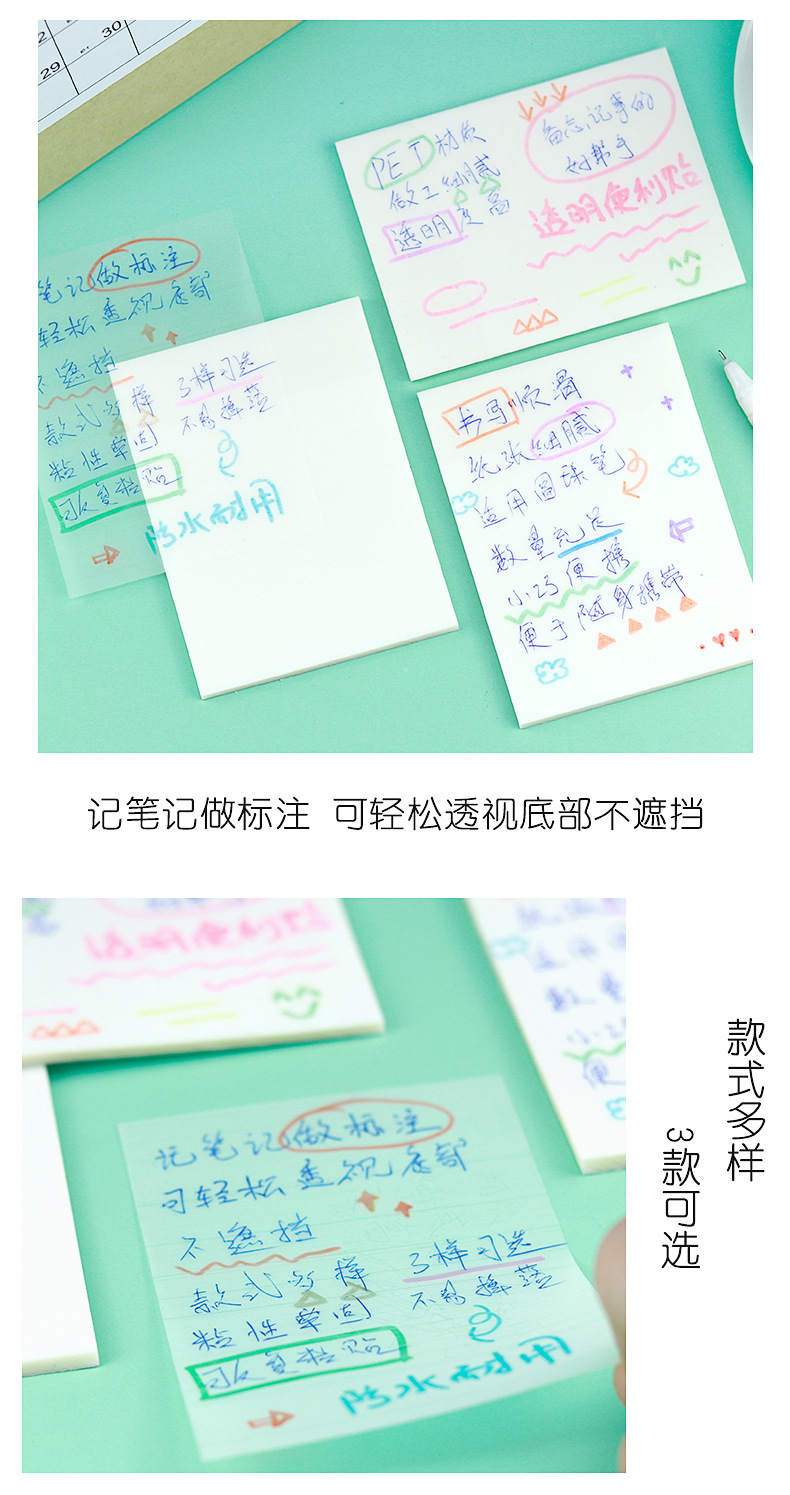 30
29
PET材质
做工细腻
透明度高
备忘,记事的
好帮手
透明便利贴
笔记做标注
轻松透视底部
不遮挡
款式多样
3样可选
粘性牢固
不易掉落
可反复粘贴
防水耐用
书写顺滑
纸张细腻
适用圆珠笔
数量充足
小巧便携
便于随身携带
记笔记做标注 可轻松透视底部不遮挡
透明便利贴
记笔记做标注
可轻松透视底部
不遮挡
款式多样
3样可选
粘性牢固
不易掉落
可反复粘贴
防水耐用
适用
数量
小巧
便
款式多样
3款可选